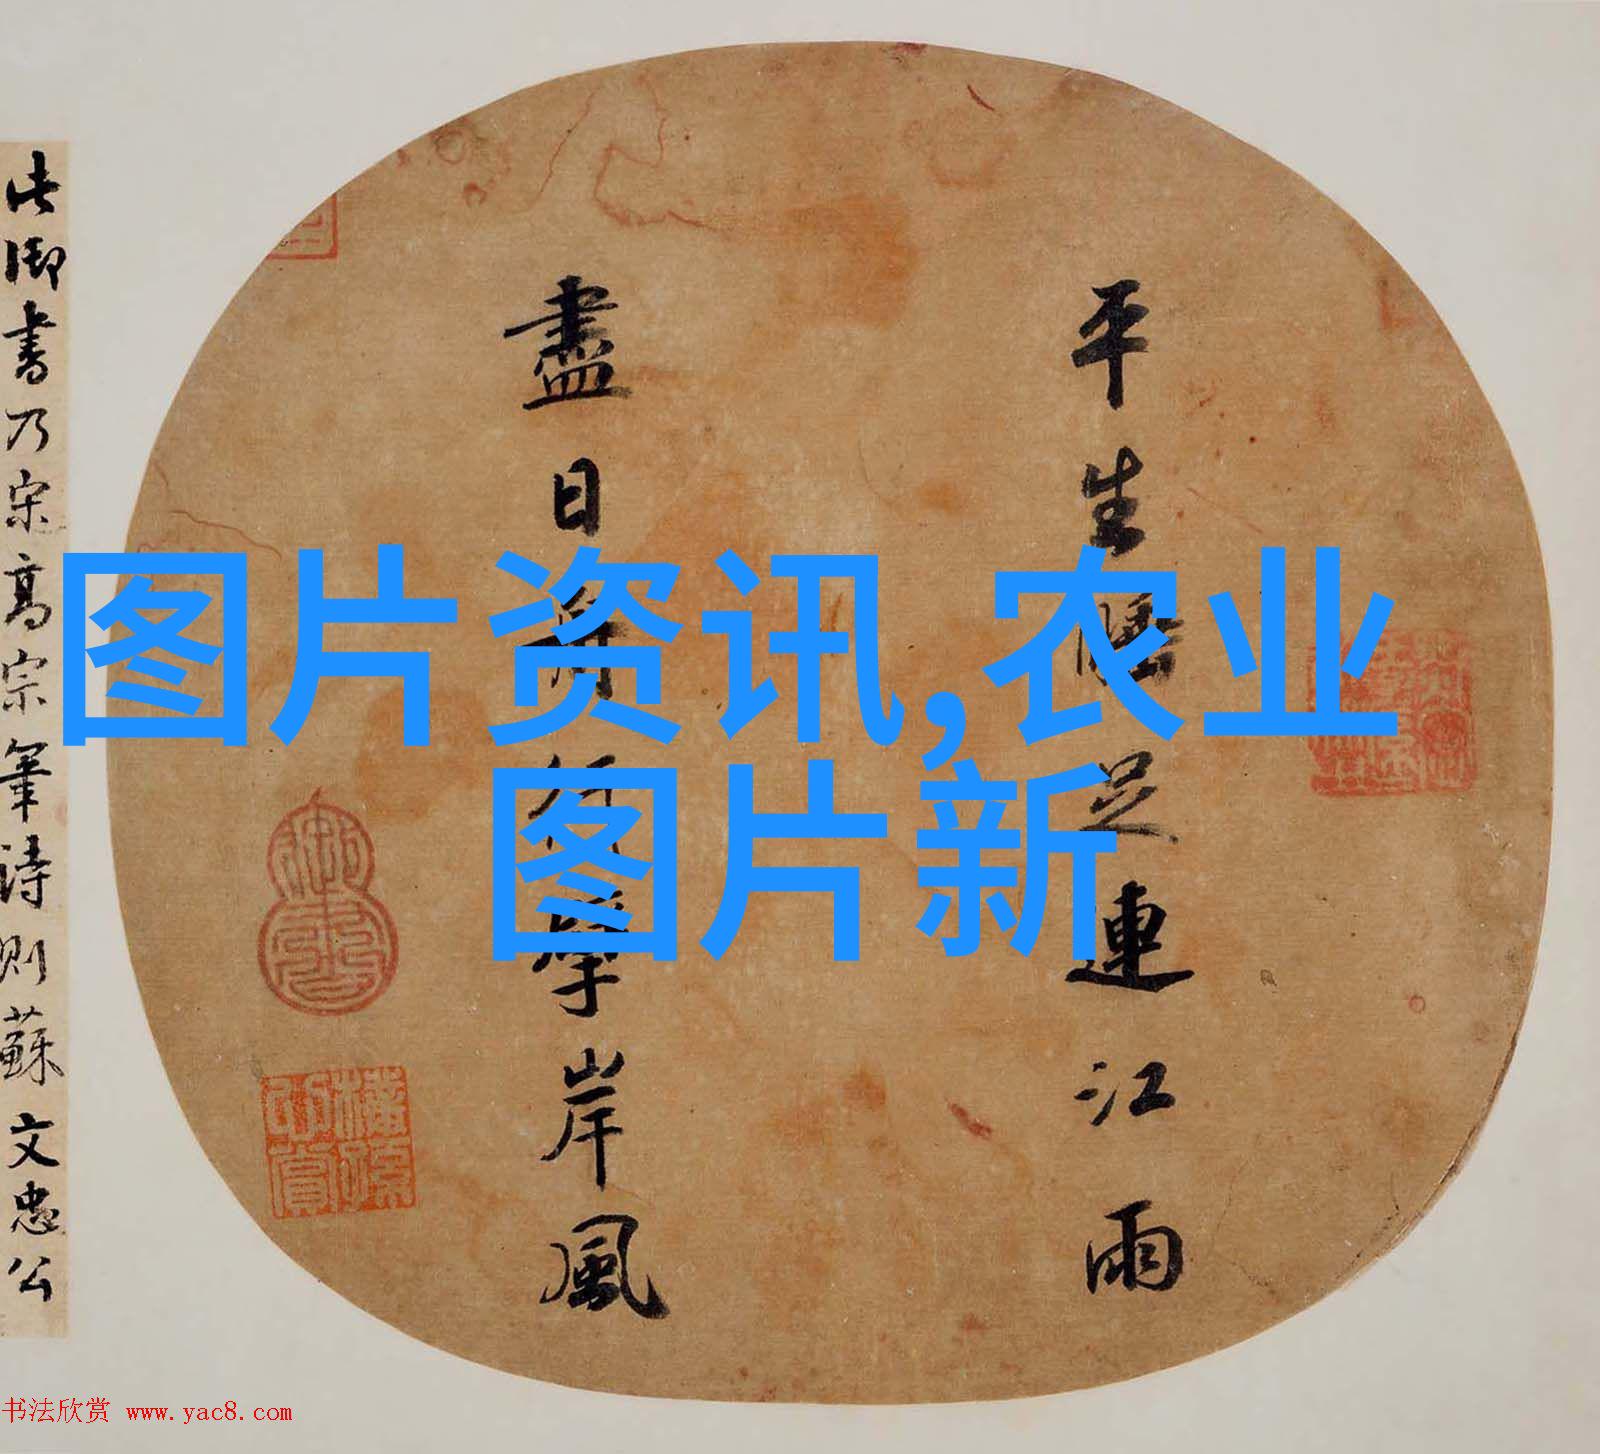 图片资讯,农业
图片新
平生睡足連江雨
盡日擘岸風
此御書乃宋高宗筆詩則蘇文忠公
书法欣赏 www.yac8.com